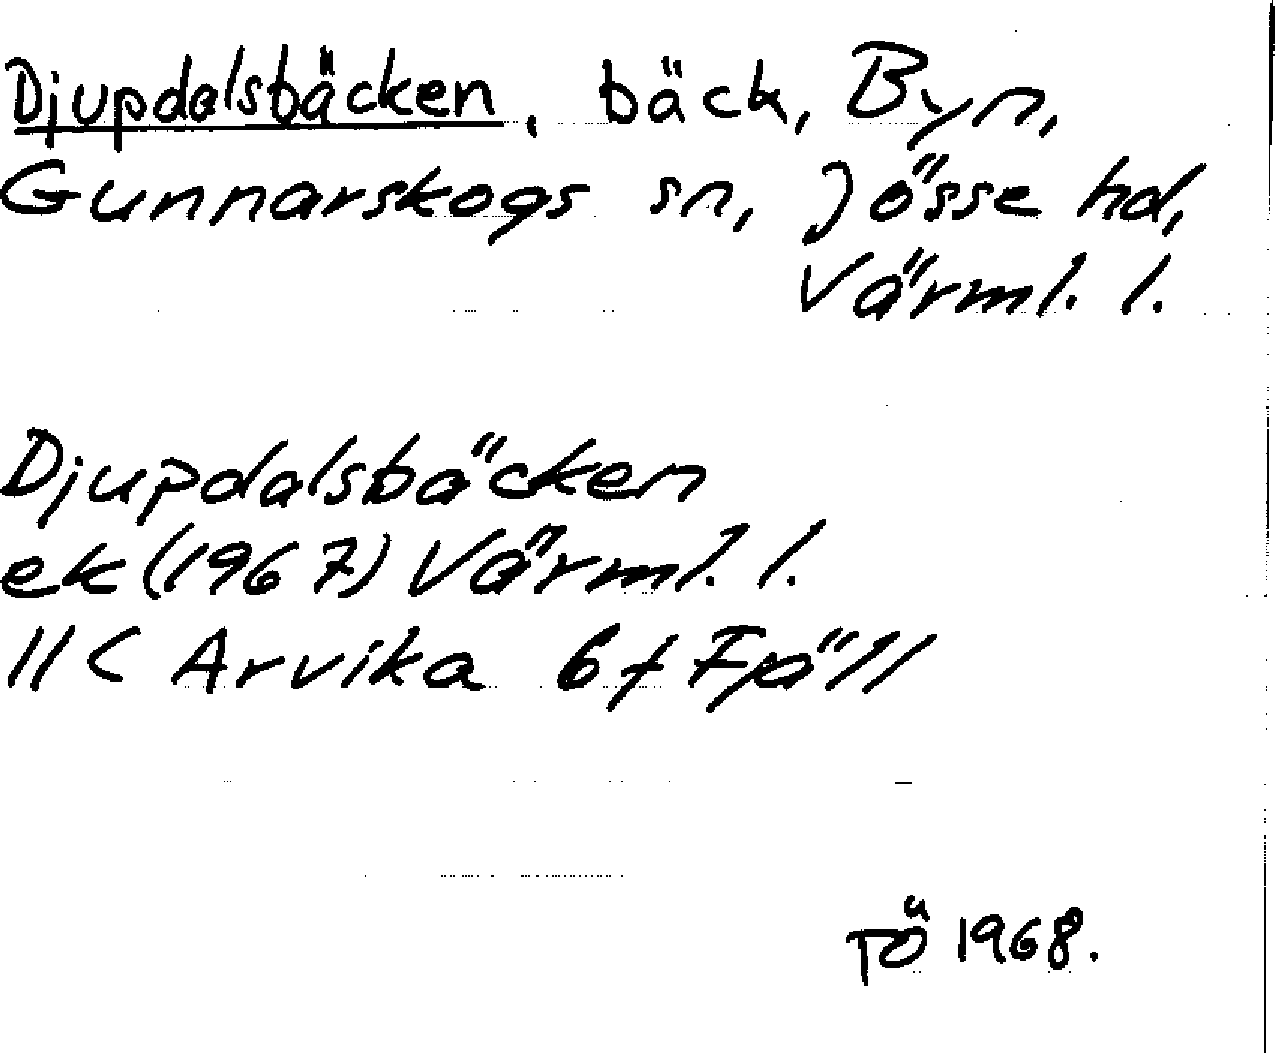 Djupdalsbäcken, bäck, Byn,
Gunnarskogs sn, Jösse hd,
Värml. l.
Djupdalsbäcken
ek (1967) Värml. l.
11C Arvika 6f Fjäll
TÖ 1968.